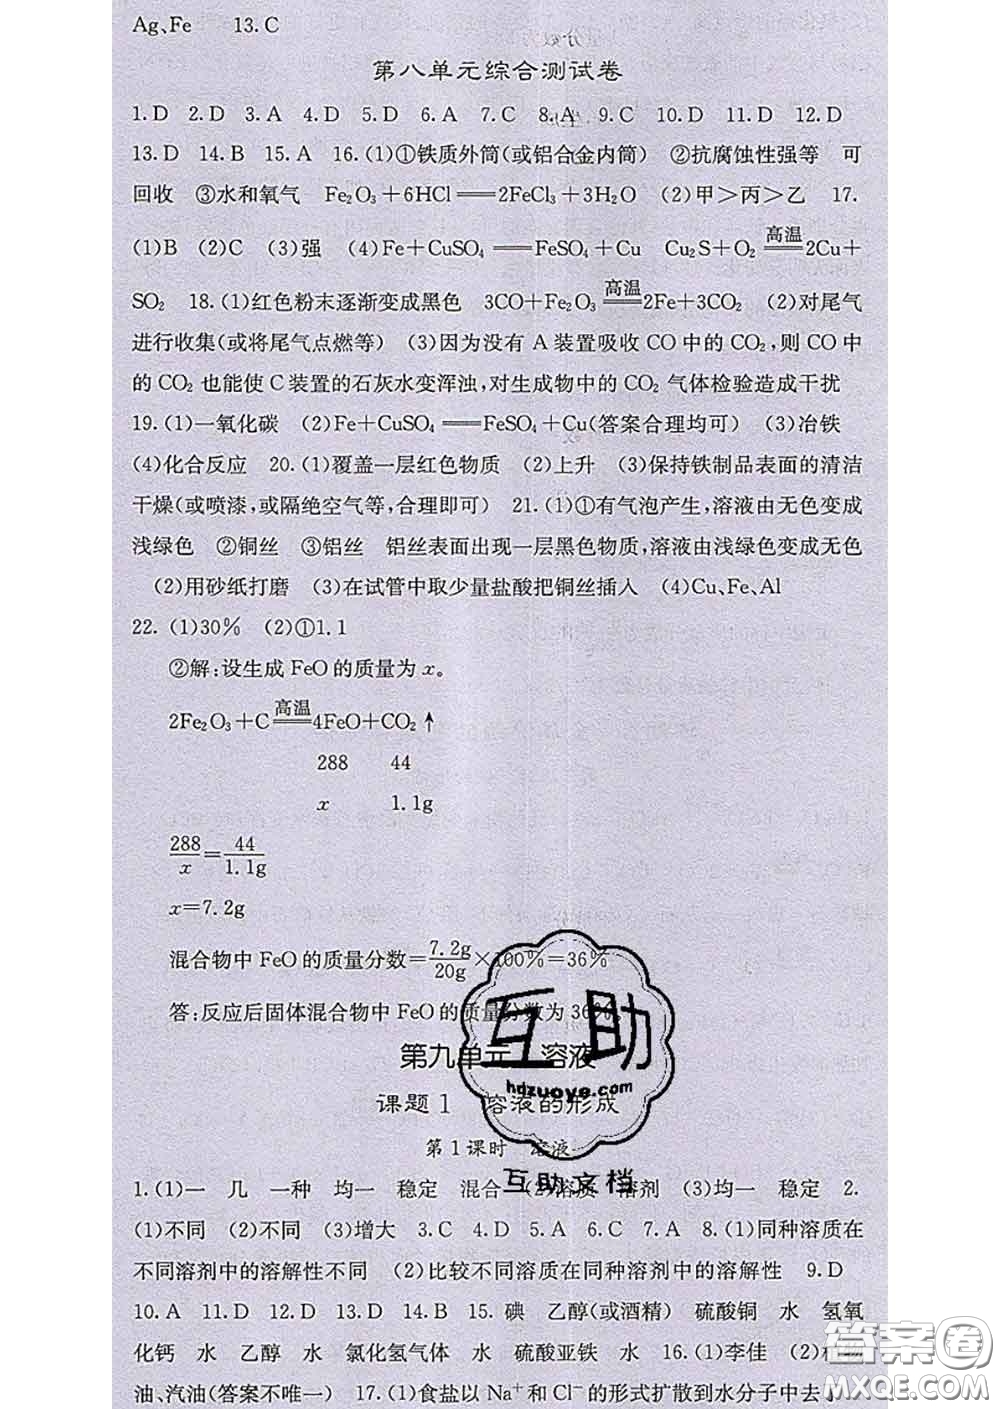 Ag、Fe 13. C
第八单元综合测试卷
1. D 2. D 3. A 4. D 5. D 6. A 7. C 8. A 9. C 10. D 11. D 12. D
13. D 14. B 15. A 16. (1)①铁质外筒(或铝合金内筒) ②抗腐蚀性强等 可
回收 ③水和氧气 Fe₂O₃+6HCl══2FeCl₃+3H₂O (2)甲>丙>乙 17.
(1)B (2)C (3)强 (4)Fe+CuSO₄══FeSO₄+Cu Cu₂S+O₂ 高温══ 2Cu+
SO₂ 18. (1)红色粉末逐渐变成黑色 3CO+Fe₂O₃ 高温══ 2Fe+3CO₂ (2)对尾气
进行收集(或将尾气点燃等) (3)因为没有 A 装置吸收 CO 中的 CO₂,则 CO 中
的 CO₂ 也能使 C 装置的石灰水变浑浊,对生成物中的 CO₂ 气体检验造成干扰
19. (1)一氧化碳 (2)Fe+CuSO₄══FeSO₄+Cu(答案合理均可) (3)冶铁
(4)化合反应 20. (1)覆盖一层红色物质 (2)上升 (3)保持铁制品表面的清洁
干燥(或喷漆,或隔绝空气等,合理即可) 21. (1)①有气泡产生,溶液由无色变成
浅绿色 ②铜丝 ③铝丝 铝丝表面出现一层黑色物质,溶液由浅绿色变成无色
(2)用砂纸打磨 (3)在试管中取少量盐酸把铜丝插入 (4)Cu、Fe、Al
22. (1)30% (2)①1.1
②解:设生成 FeO 的质量为 x。
2Fe₂O₃+C 高温══ 4FeO+CO₂↑
288 44
x 1.1g
288/x=44/1.1g
x=7.2g
混合物中 FeO 的质量分数=7.2g/20g×100%=36%
答:反应后固体混合物中 FeO 的质量分数为 36%。
第九单元 溶液
课题 1 溶液的形成
第 1 课时 溶液
1. (1)一 几 一种 均一 稳定 混合 (2)溶质 溶剂 (3)均一 稳定 2.
(1)不同 (2)不同 (3)增大 3. C 4. D 5. A 6. C 7. A 8. (1)同种溶质在
不同溶剂中的溶解性不同 (2)比较不同溶质在同种溶剂中的溶解性 9. D
10. A 11. D 12. D 13. D 14. B 15. 碘 乙醇(或酒精) 硫酸铜 水 氢氧
化钙 水 乙醇 水 氯化氢气体 水 硫酸亚铁 水 16. (1)李佳 (2)植物
油、汽油(答案不唯一) 17. (1)食盐以 Na⁺ 和 Cl⁻ 的形式扩散到水分子中去了
互助
hdzuoye.com
互助文档
答案圈
MXQE.COM